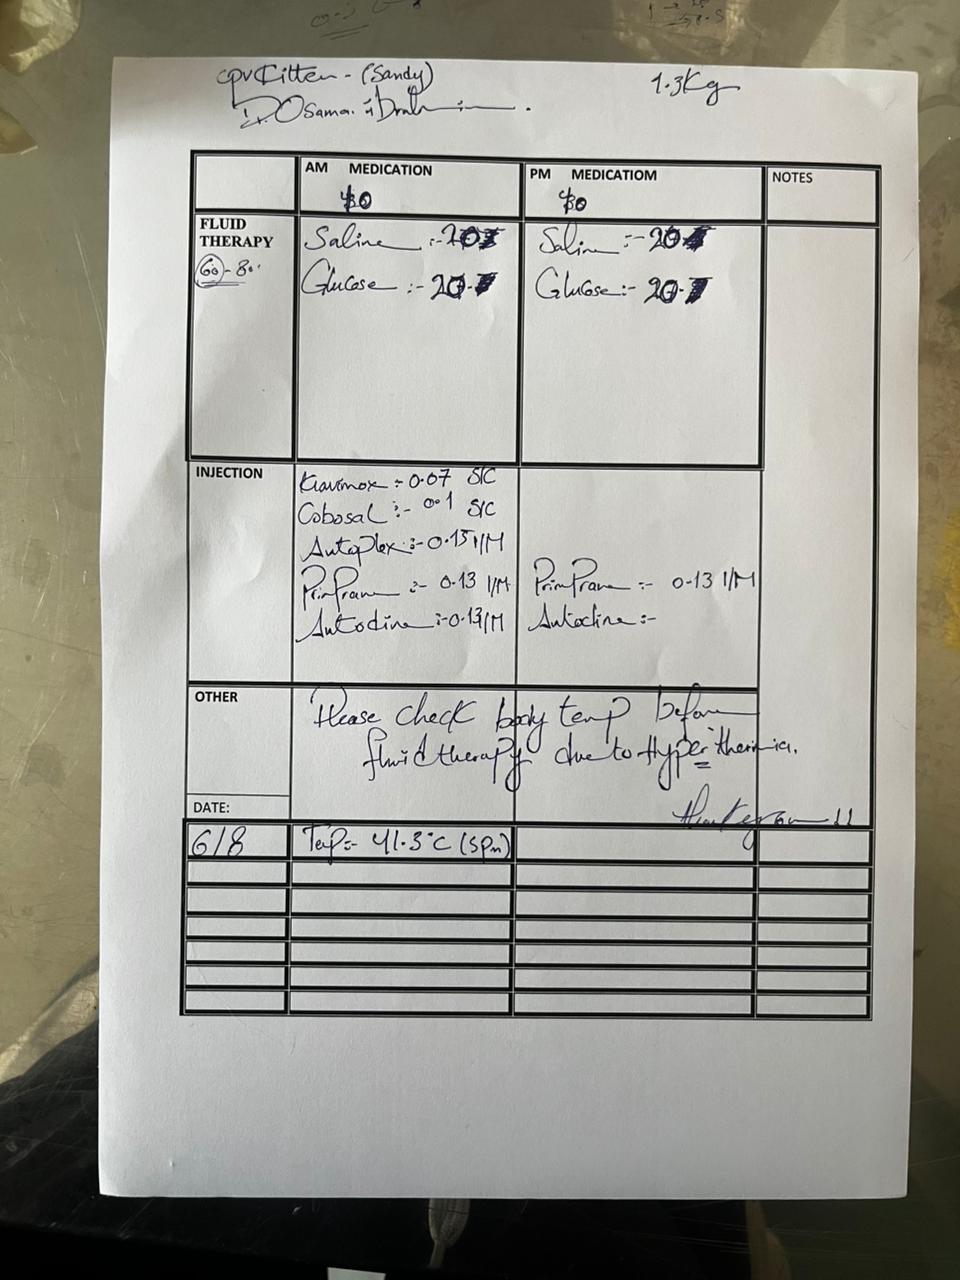 CPV Kitten - (Sandy) 1.3Kg
Osama
AM MEDICATION
PM MEDICATIOM
NOTES
FLUID THERAPY
60 - 80
Saline :- 20
Glucose :- 20
Saline :- 20
Glucose :- 20
INJECTION
:- 0.07 S/C
Cobosal :- 0.1 S/C
Autoplex :- 0.13 I/M
PrimPran :- 0.13 I/M
Autodine :- 0.13 I/M
PrimPran :- 0.13 I/M
Autodine :-
OTHER
Please check body temp before
fluid therapy due to Hyperthermia.
thank you
DATE:
6/8 Temp:- 41.3°C (5pm)